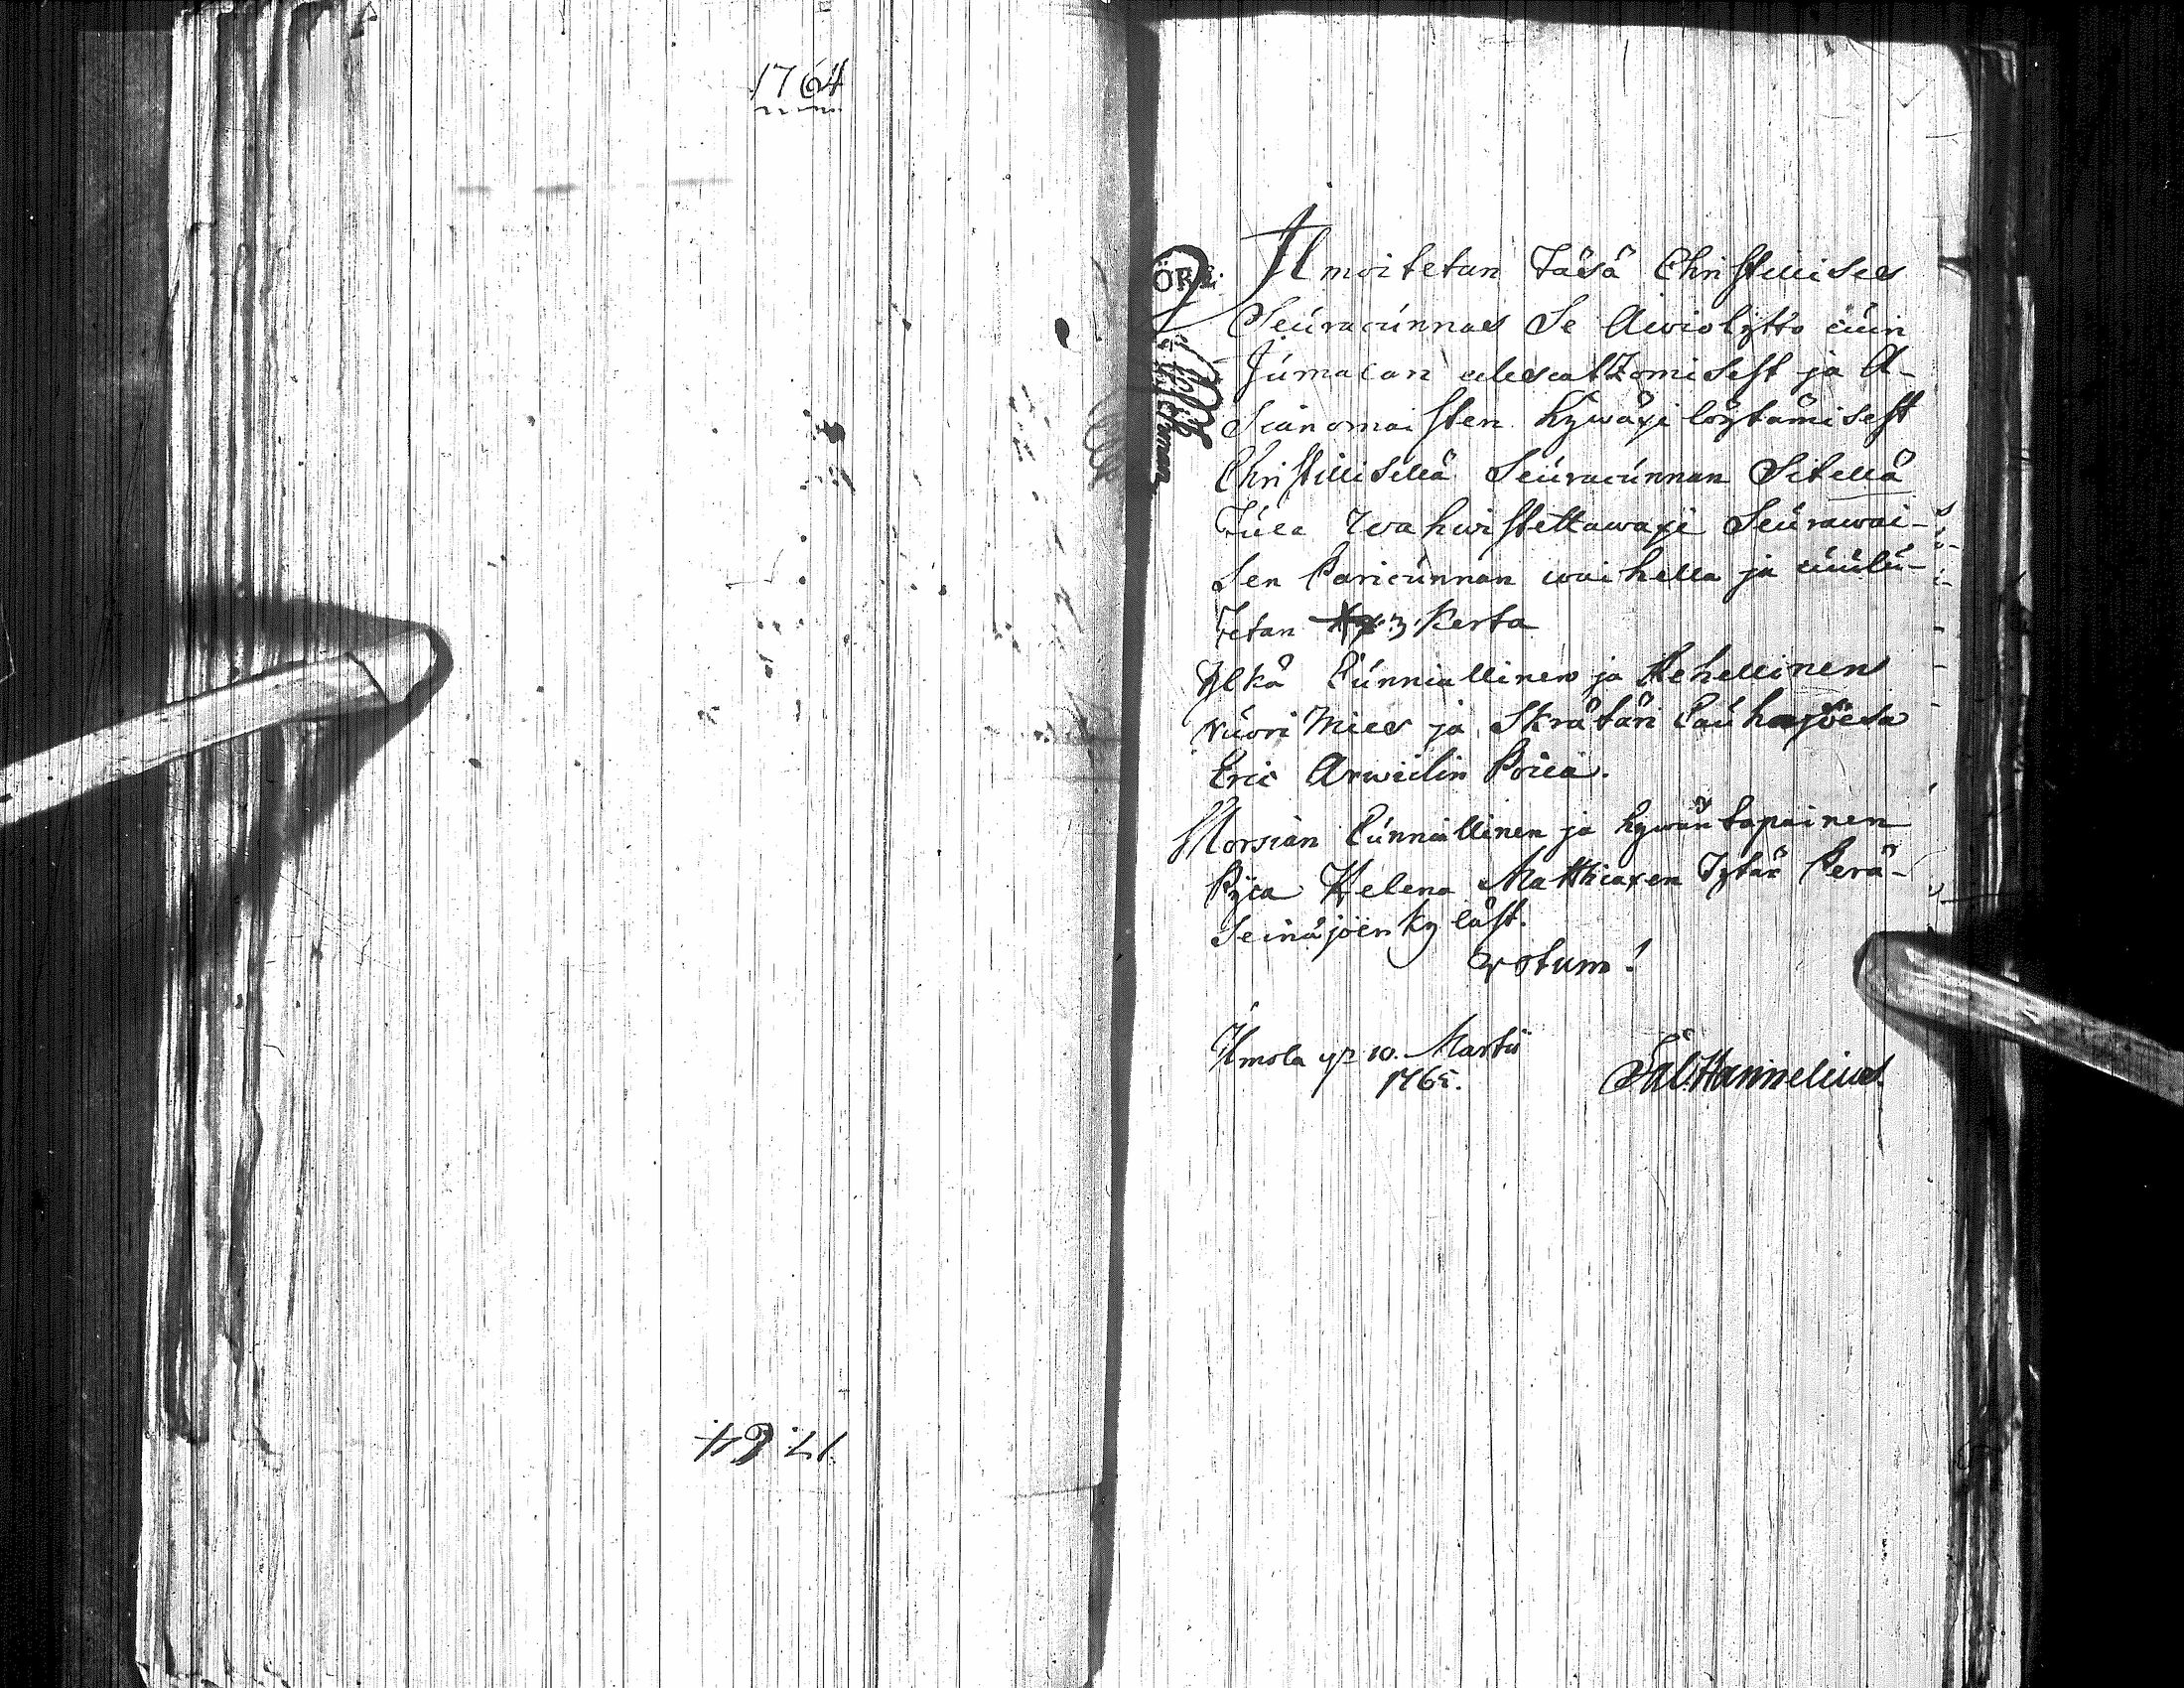 1764
17.64.
ÖRE.
Ilmoitetan Täsä Christillises
Seuracunnas Se Awiokytkö cuin
Jumalan edescatzomisest ja A-
sianomaisten hywäxi löytämisest
Christillisellä Seuracunnan Sitellä
Tulee wahwistettawaxi Seurawai-
sen Paricunnan waihella ja cuulu-
tetan 3 Kerta
Ylkä Cunniallinen ja Rehellinen
nuori Mies ja Skrätäri Cauhajoesa
Eric Arwielin Poica.
Morsian Cunniallinen ja hywäntapainen
Pijca Helena Matthiaxen Tytär Perä-
Seinäjoen kyläst.
Votum!
Ilmola yp 10. Martii
1765.
Sal. Hannelius.